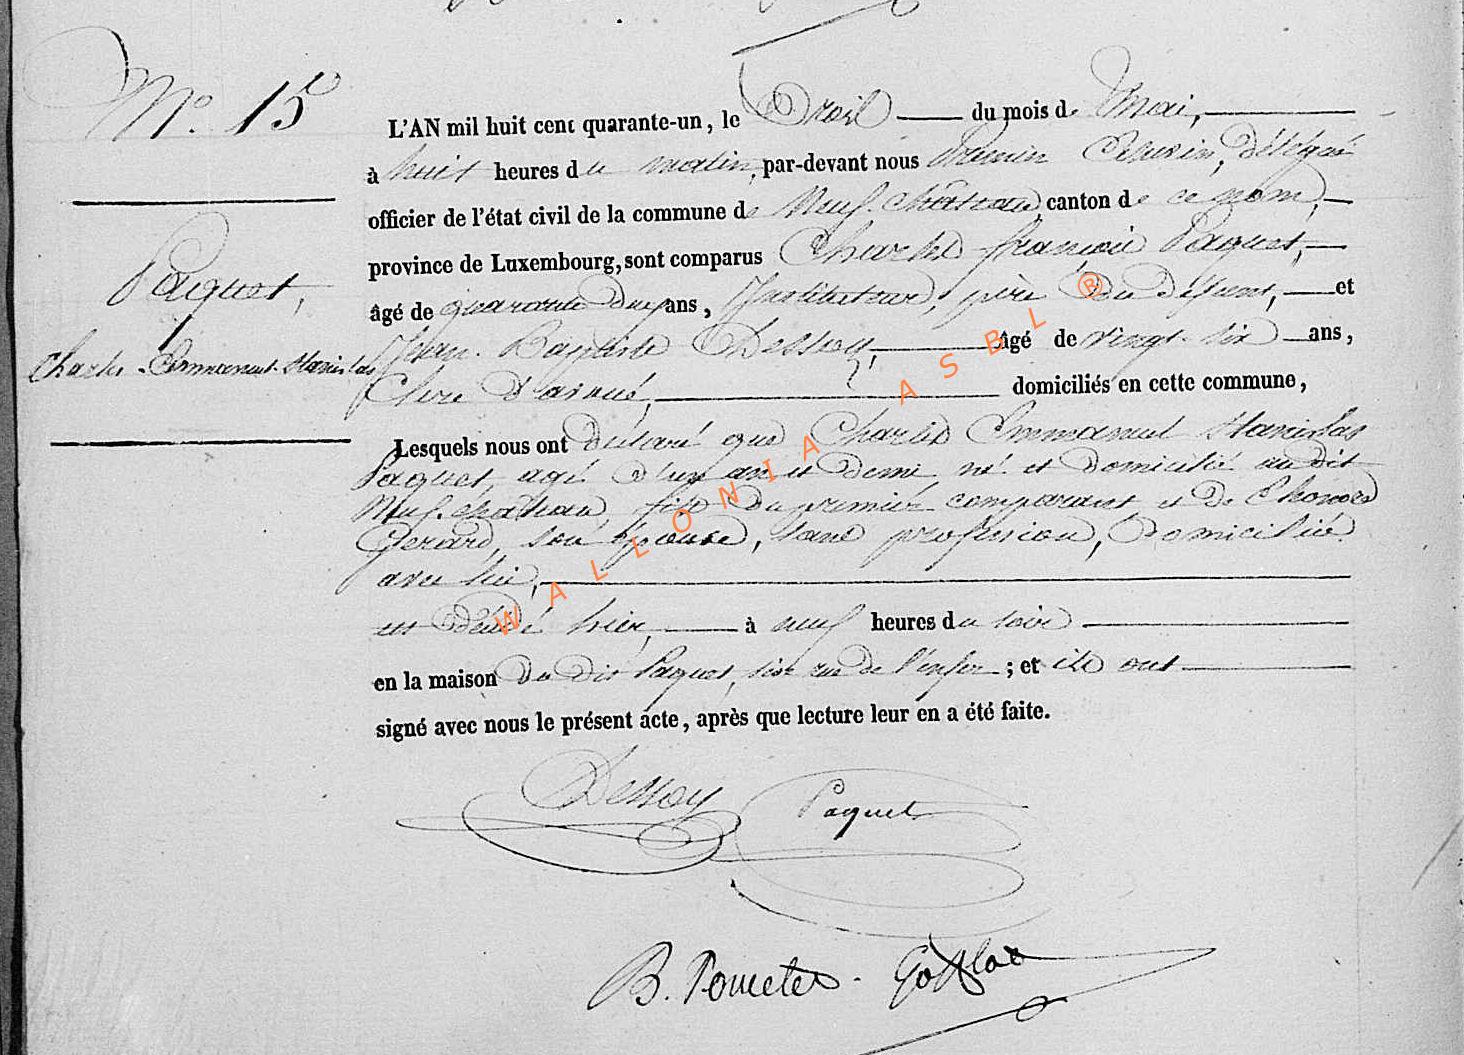 N.° 15
Paquet,
Charles-Emmanuel-Stanislas
L'AN mil huit cent quarante-un, le trois du mois de Mai,
à huit heures du matin, par-devant nous Échevin, délégué
officier de l'état civil de la commune de Neuf-château, canton de ce nom,
province de Luxembourg, sont comparus Charles françois Paquet,
âgé de quarante deux ans, Instituteur, père du défunt, et
Jean-Baptiste Dessoy, âgé de vingt-six ans,
Clerc d'avoué, domiciliés en cette commune,
Lesquels nous ont déclaré que Charles Emmanuel Stanislas
Paquet, agé d'un an et demi, né et domicilié au dit
Neufchâteau, fils du premier comparant et de
Gerard, son épouse, sans profession, domiciliée
avec lui,
est décédé hier, à neuf heures du soir
en la maison du dit Paquet, sise rue de l'enfer ; et ils ont
signé avec nous le présent acte, après que lecture leur en a été faite.
Dessoy Paquet
B.
WALLONIA ASBL ®